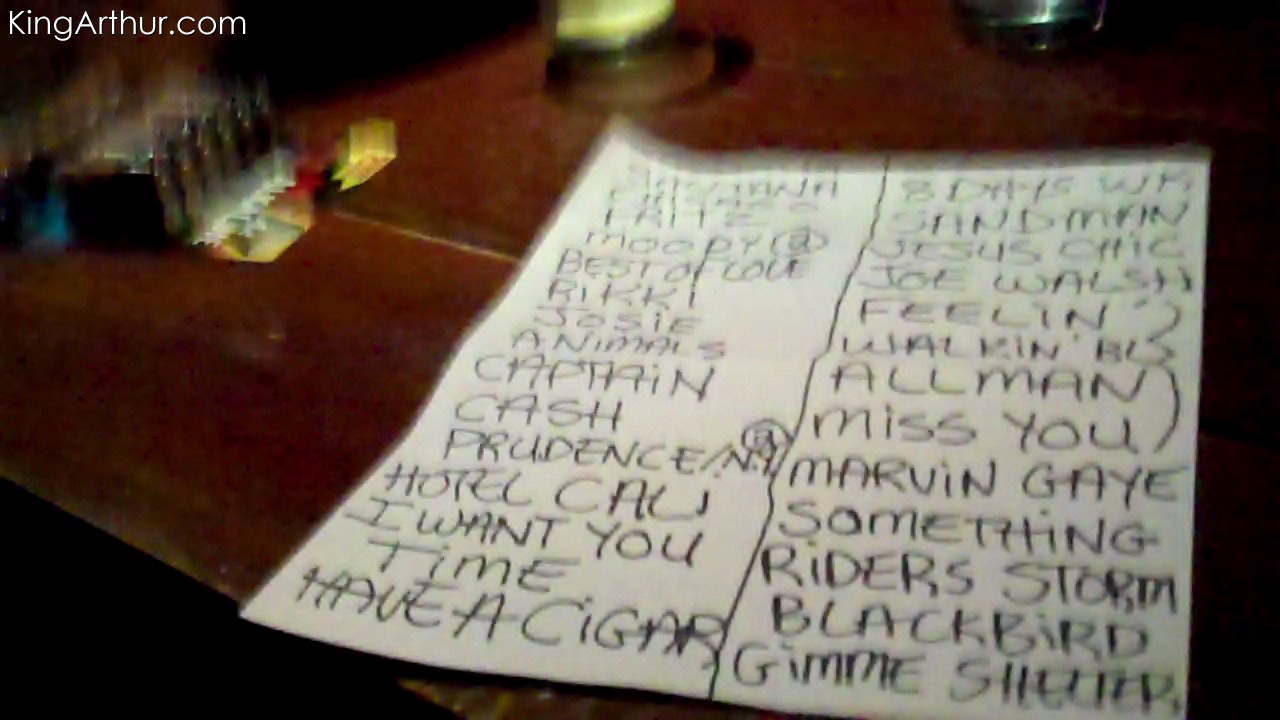 KingArthur.com
MOOPY @
BEST OF LOVE
RIKKI
JOSIE
ANIMALS
CAPTAIN
CASH
PRUDENCE/N.Y @
HOTEL CALI
I WANT YOU
TIME
HAVE A CIGAR
8 DAYS WK
SANDMAN
JESUS CHIC
JOE WALSH
FEELIN'
WALKIN' BLS
ALLMAN
MISS YOU
MARVIN GAYE
SOMETHING
RIDERS STORM
BLACKBIRD
GIMME SHELTER